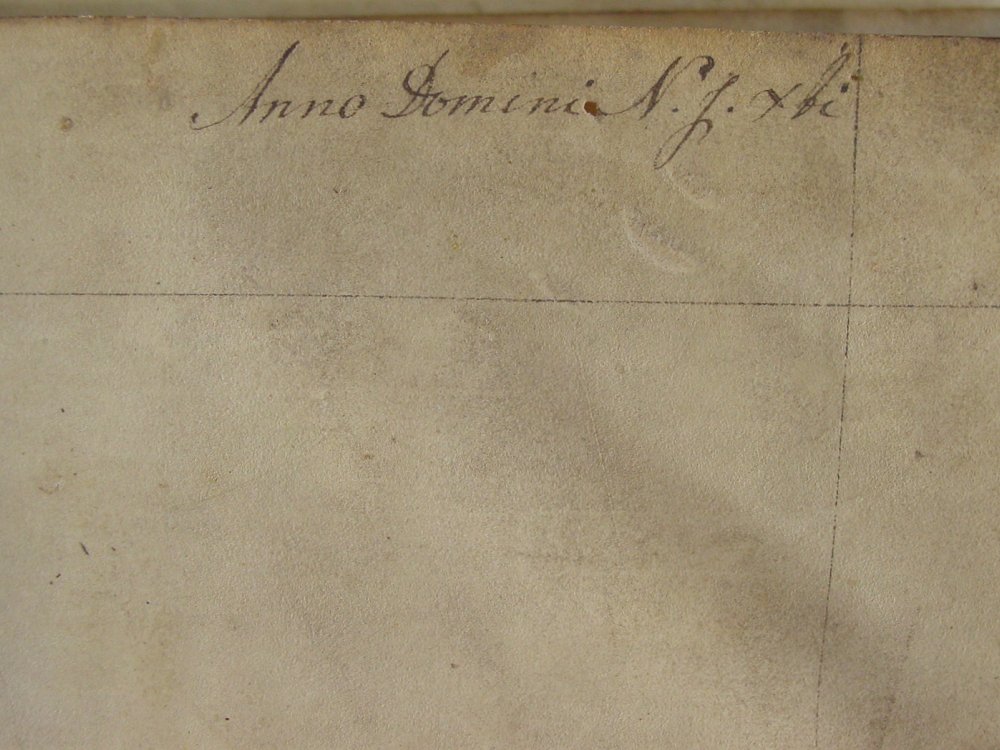 Anno Domini N. J. xbi